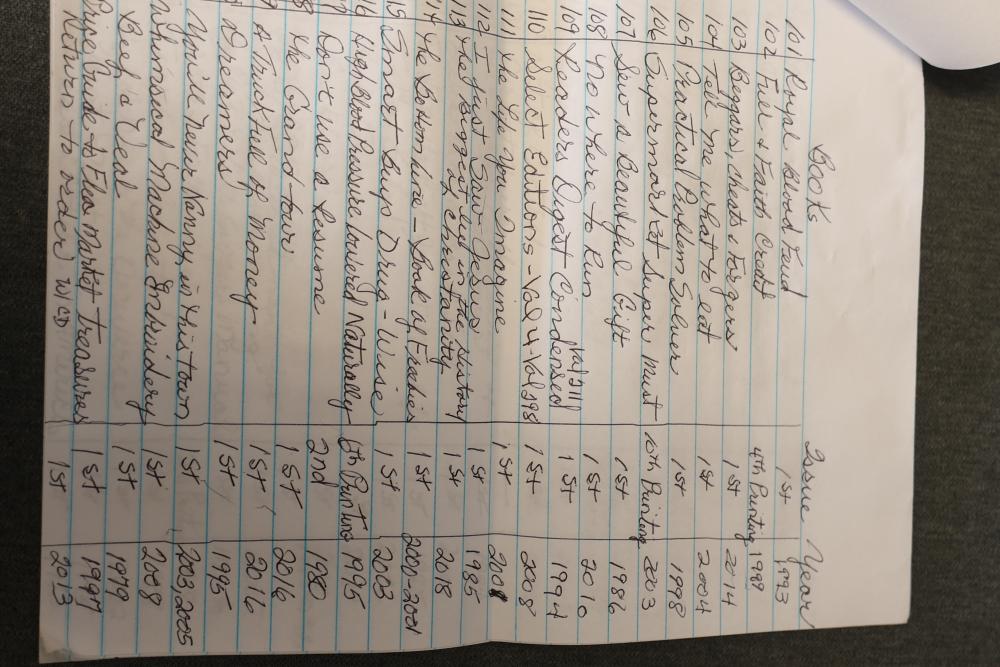 Books Issue Year
101 Royal Blood Feud 1st 1993
102 Fuel & Faith Credit 4th Printing 1988
103 Beggars, cheats & Forgers 1st 2014
104 Tell Me what to eat 1st 2004
105 Practical Problem Solver 1st 1998
106 Supermarket Super Must 10th Printing 2003
107 Sew a Beautiful Gift 1st 1986
108 No where to Run 1st 2010
109 Readers Digest Condensed Vol 3 1st 1994
110 Select Editions - Vol 4 - Vol 298 1st 2008
111 The Life you Imagine 1st
112 I just Saw Jesus 1st 1985
113 The largest in the history Christianity 1st 2018
The Bottom line - Book of 1st 2000-2001
Smart Buys Drug - Wise 1st 2003
High Blood Pressure lowered Naturally 6th Printing 1995
Don't use a Resume 2nd 1980
The Grand tour 1st 2016
A Truck Full of Money 1st 2016
Dreamers 1st 1995
You'll never Nanny in this town 1st 2003, 2005
Whimsical Machine Embroidery 1st 2008
Beef & Veal 1st 1979
Guide to Flea Market Treasures 1st 1997
Return to w/CD 1st 2013